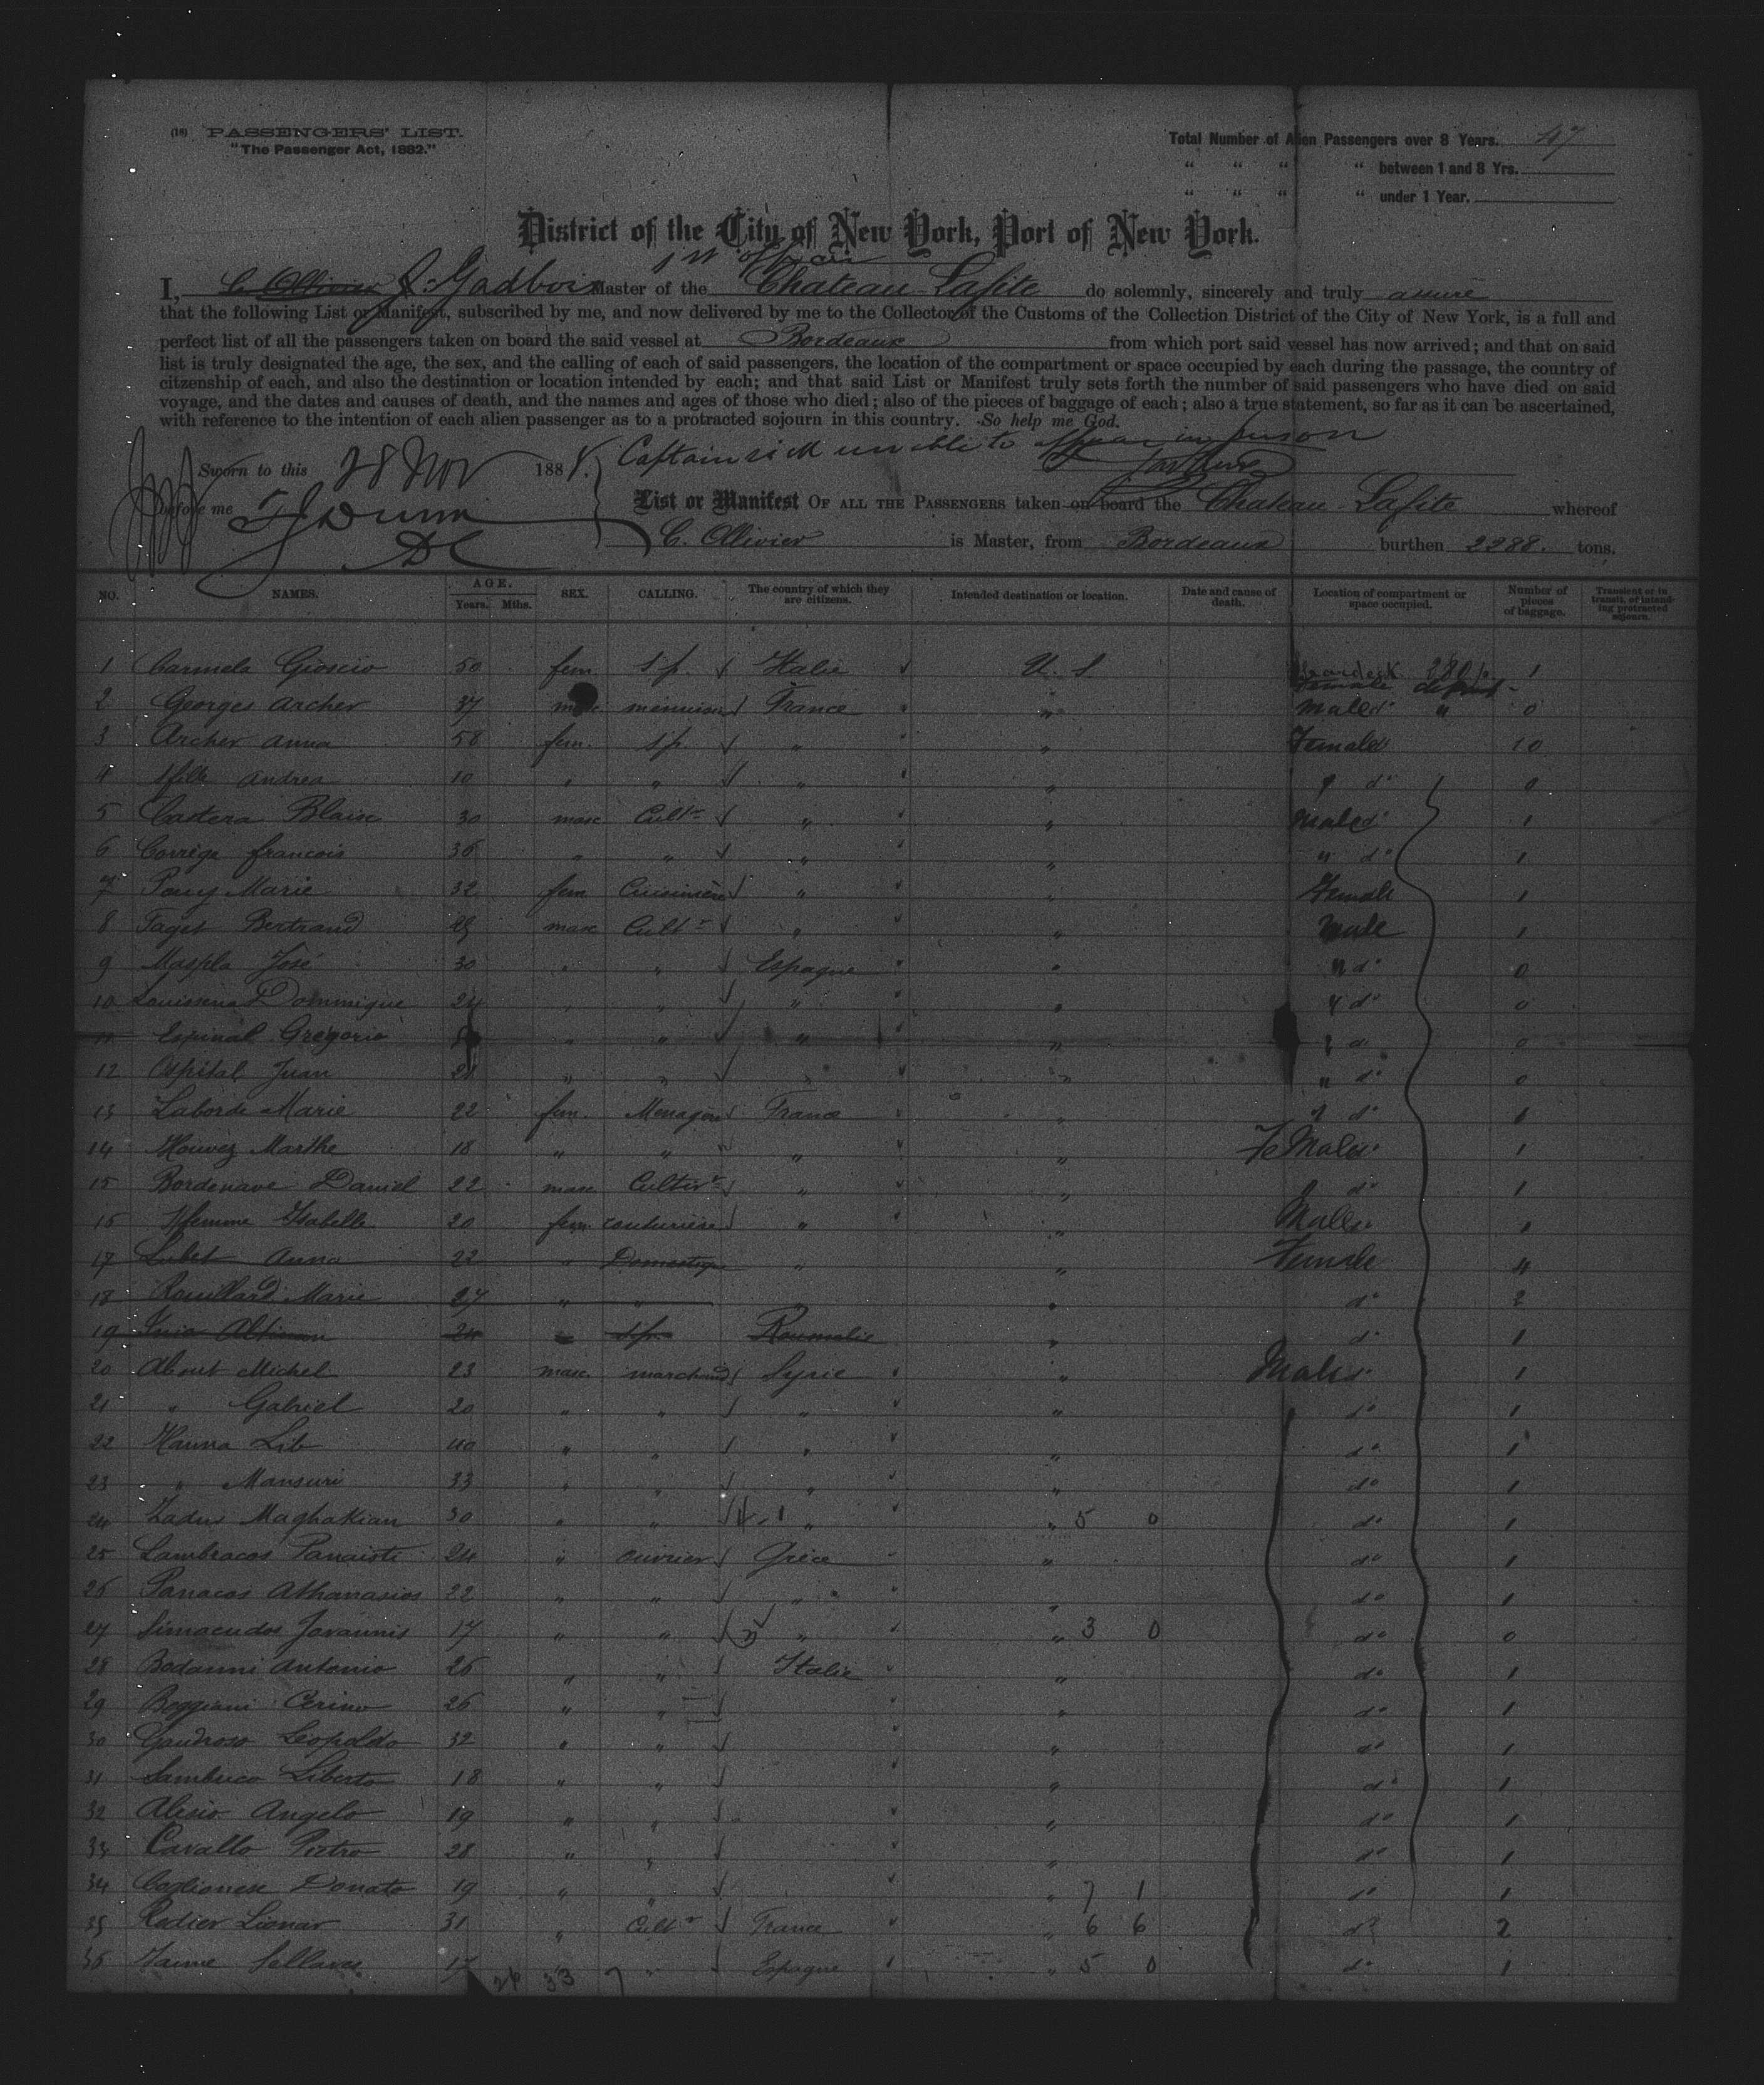 (18) PASSENGERS' LIST.
"The Passenger Act, 1882."
Total Number of Alien Passengers over 8 Years. 47
" " " " between 1 and 8 Yrs.
" " " " under 1 Year.
District of the City of New York, Port of New York.
1st officer
I, C. Ollivier J. Gadbois Master of the Chateau Lafite do solemnly, sincerely and truly assure
that the following List or Manifest, subscribed by me, and now delivered by me to the Collector of the Customs of the Collection District of the City of New York, is a full and
perfect list of all the passengers taken on board the said vessel at Bordeaux from which port said vessel has now arrived; and that on said
list is truly designated the age, the sex, and the calling of each of said passengers, the location of the compartment or space occupied by each during the passage, the country of
citzenship of each, and also the destination or location intended by each; and that said List or Manifest truly sets forth the number of said passengers who have died on said
voyage, and the dates and causes of death, and the names and ages of those who died; also of the pieces of baggage of each; also a true statement, so far as it can be ascertained,
with reference to the intention of each alien passenger as to a protracted sojourn in this country. So help me God.
Captain sick unable to appear in person
Sworn to this 28 Nov 1888.
before me
List or Manifest OF ALL THE PASSENGERS taken on board the Chateau Lafite whereof
C. Ollivier is Master, from Bordeaux burthen 2288. tons.
NO. NAMES. AGE. Years. Mths. SEX. CALLING. The country of which they are citizens. Intended destination or location. Date and cause of death. Location of compartment or space occupied. Number of pieces of baggage. Transient or in transit, or intending protracted sojourn.
1 Carmela Gioscio 50 fem. s.p. Italie U. S. Female 1
2 Georges Archer 37 masc. menuisier France " Male do " 0
3 Archer Anna 58 fem. s.p. " " Female 10
4 Andrea 10 " " " " " do 0
5 Castera Blaise 30 masc Cultr " " Male do 1
6 Corrège francois 36 " " " " " do 1
7 Pouy Marie 32 fem Cuisinière " " Female 1
8 Faget Bertrand masc Cultr " " Male 1
9 Maspla José 30 " " Espagne " " do 0
10 Dominique 24 " " " " " do 0
11 Espinal Gregorio " " " " " do 0
12 Ospital Juan 21 " " " " " do 0
13 Laborde Marie 22 fem. Menagère France " " do 1
14 Marthe 18 " " " " FeMale do 1
15 Bordenave Daniel 22 masc Cultivr " " do 1
16 femme Isabelle 20 fem. couturière " " Male do 1
17 Lubet Anna 22 " Domestique " " Female "
18 Rouillard Marie 27 " " " do 2
19 24 " s.p. Roumelie " do 1
20 About Michel 23 masc. marchand Syrie " Male do 1
21 " Gabriel 20 " " " " do 1
22 Hanna Lib 40 " " " " do 1
23 " Mansuri 33 " " " " do 1
24 Zadur Maghakian 30 " " " " 5 0 do 1
25 Lambracos Panaioti 24 " ouvrier Grèce " do 1
26 Panacos Athanasios 22 " " " " do 1
27 Simacudos Jovannis 17 " " " " 3 0 do 0
28 Bodanni Antonio 26 " " Italie " do 1
29 Boggiani Cerino 26 " " " do 1
30 Gaudroso Leopoldo 32 " " " do 1
31 Sambuco Liberto 18 " " " do 1
32 Alesio Angelo 19 " " " do 1
33 Cavallo Pietro 28 " " " do 1
34 Coglionese Donato 19 " " " 7 1 do 1
35 Redier Lionar 31 " Cultr France " 6 6 do 2
36 Jaime Sellares 17 " " Espagne " 5 0 do 1
26 33 7